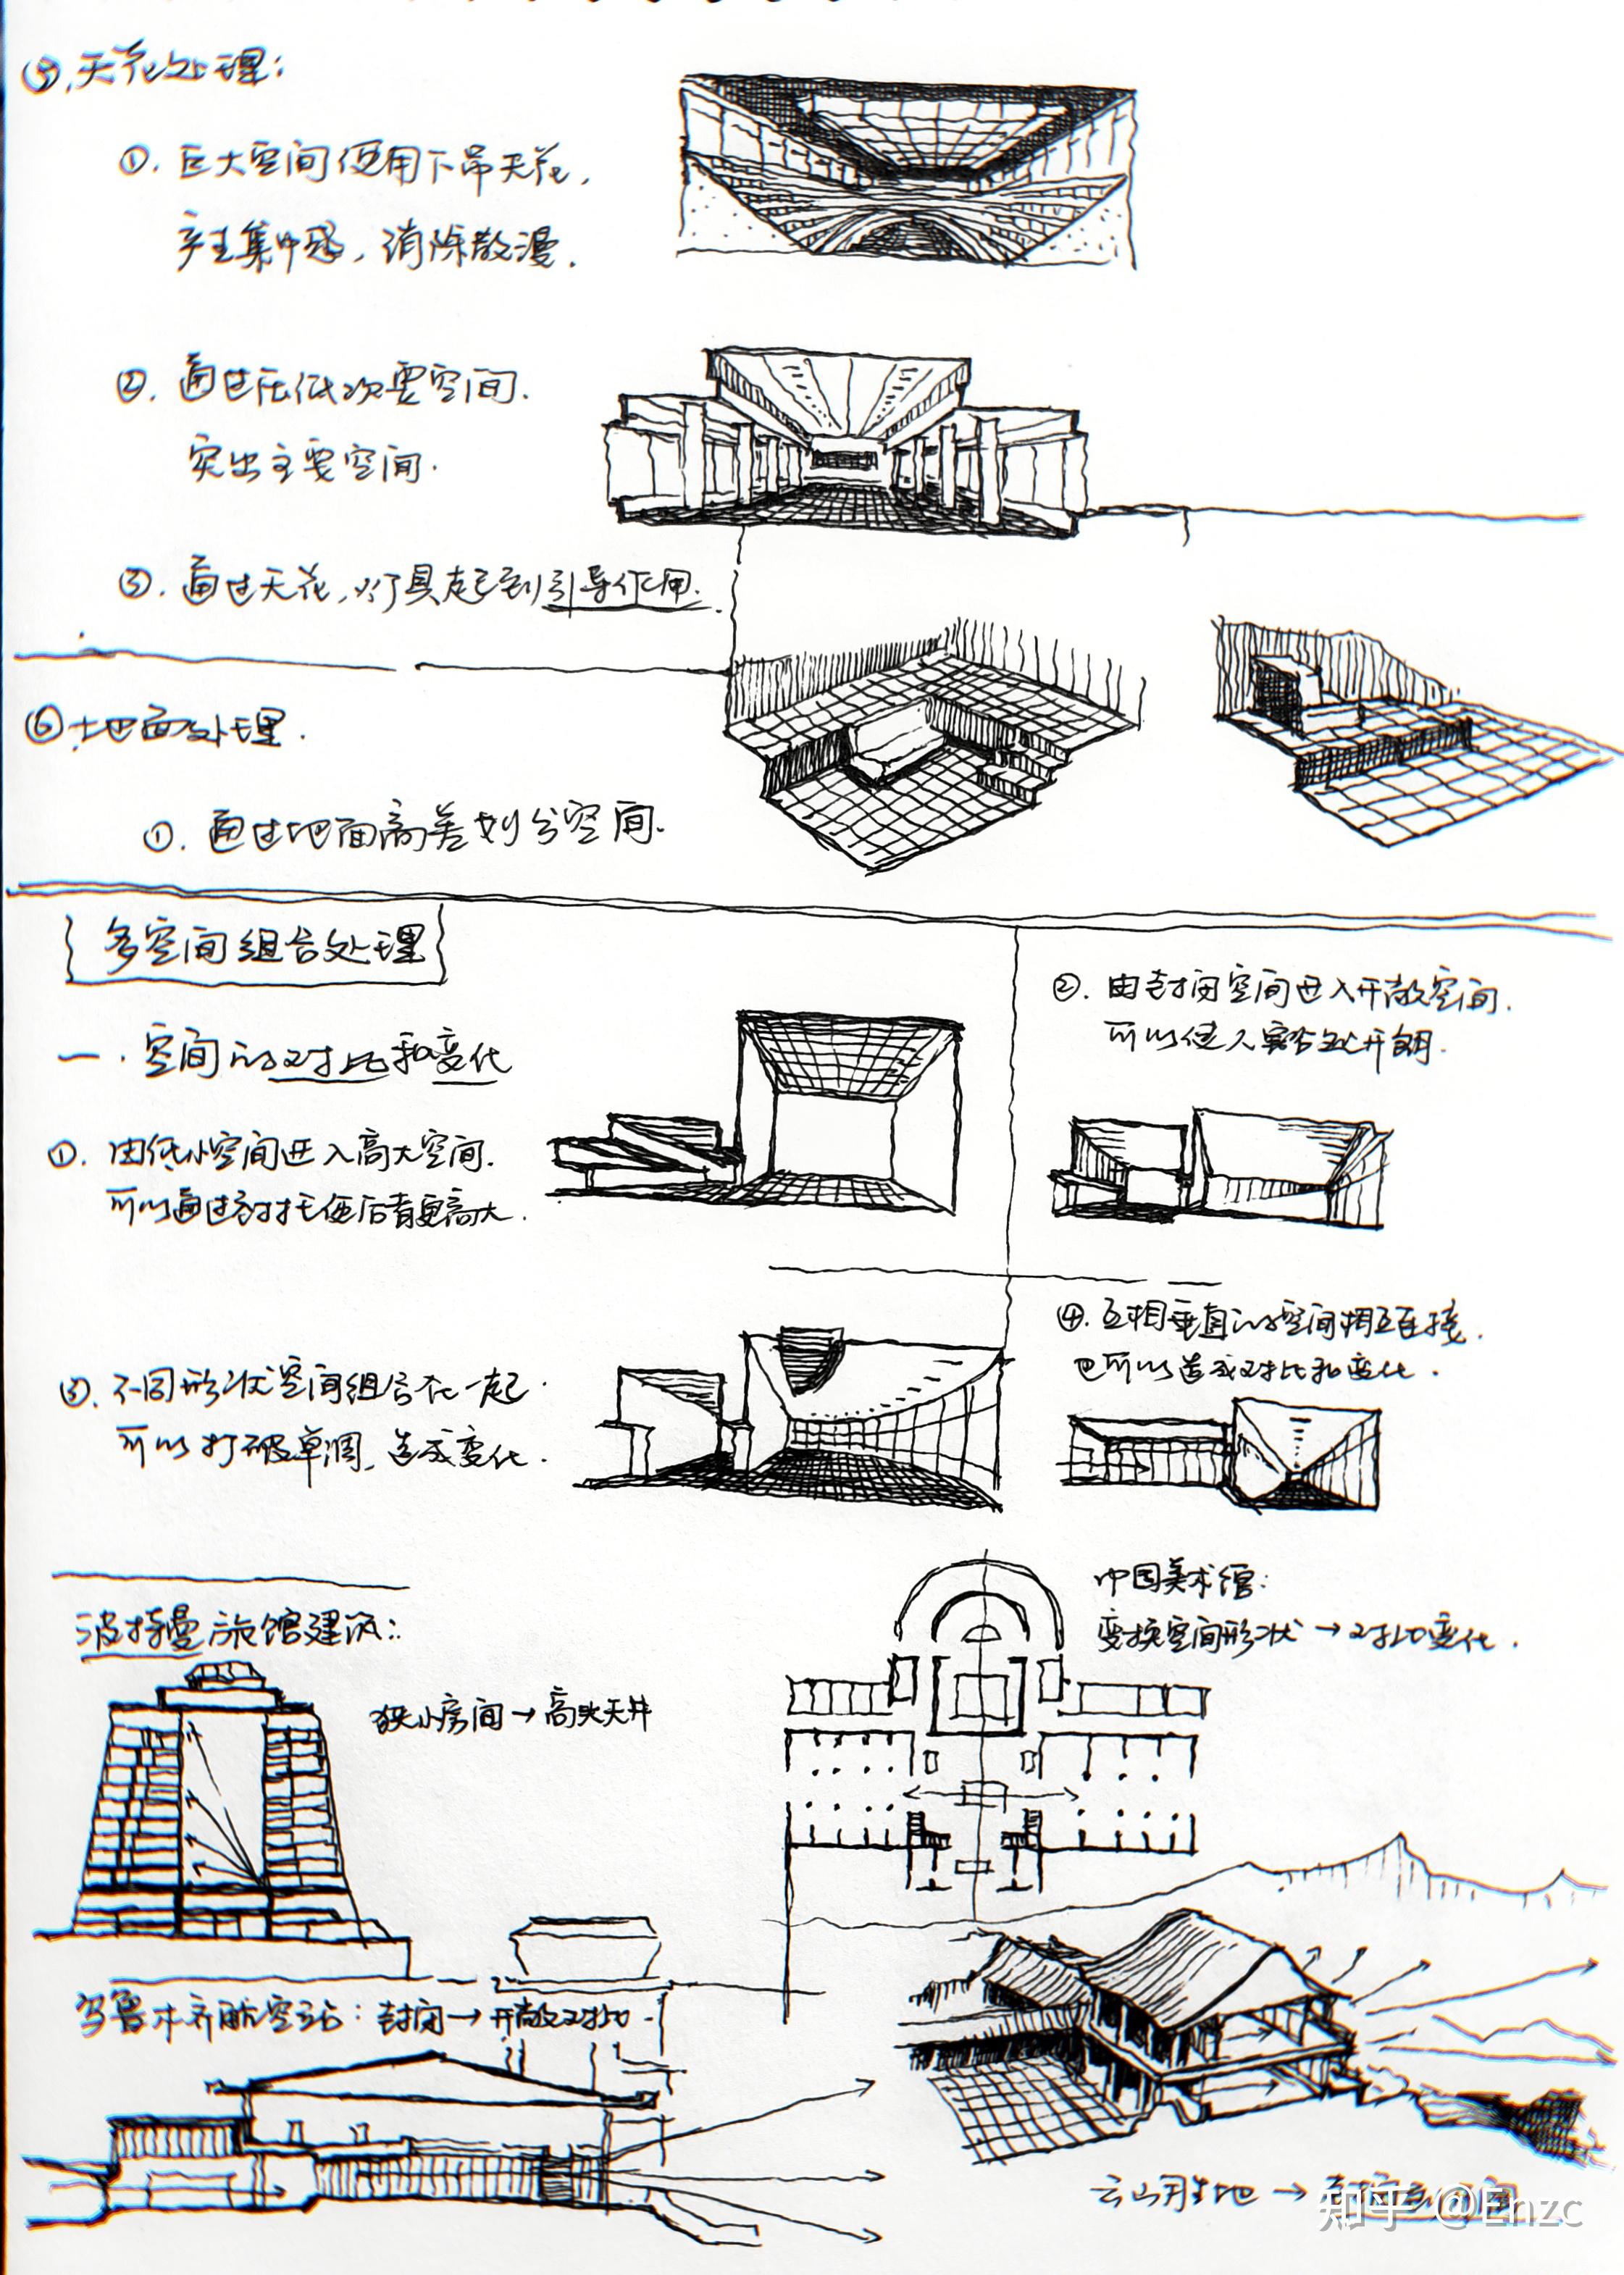 ⑤.天花处理:
①.巨大空间使用下吊天花,
产生集中感,消除散漫.
②.通过压低次要空间.
突出主要空间.
③.通过天花,灯具起到引导作用.
⑥地面处理.
①.通过地面高差划分空间.
多空间组合处理
一.空间的对比和变化
①.由低小空间进入高大空间.
可以通过衬托使后者更高大.
②.由封闭空间进入开敞空间.
可以使人豁然开朗.
③.不同形状空间组合在一起.
可以打破单调,造成变化.
④.互相垂直的空间相互连接.
也可以造成对比和变化.
波特曼旅馆建筑:
狭小房间→高大天井
中国美术馆:
变换空间形状→对比变化.
乌鲁木齐航空站:封闭→开敞对比.
→
知乎 @Enzc